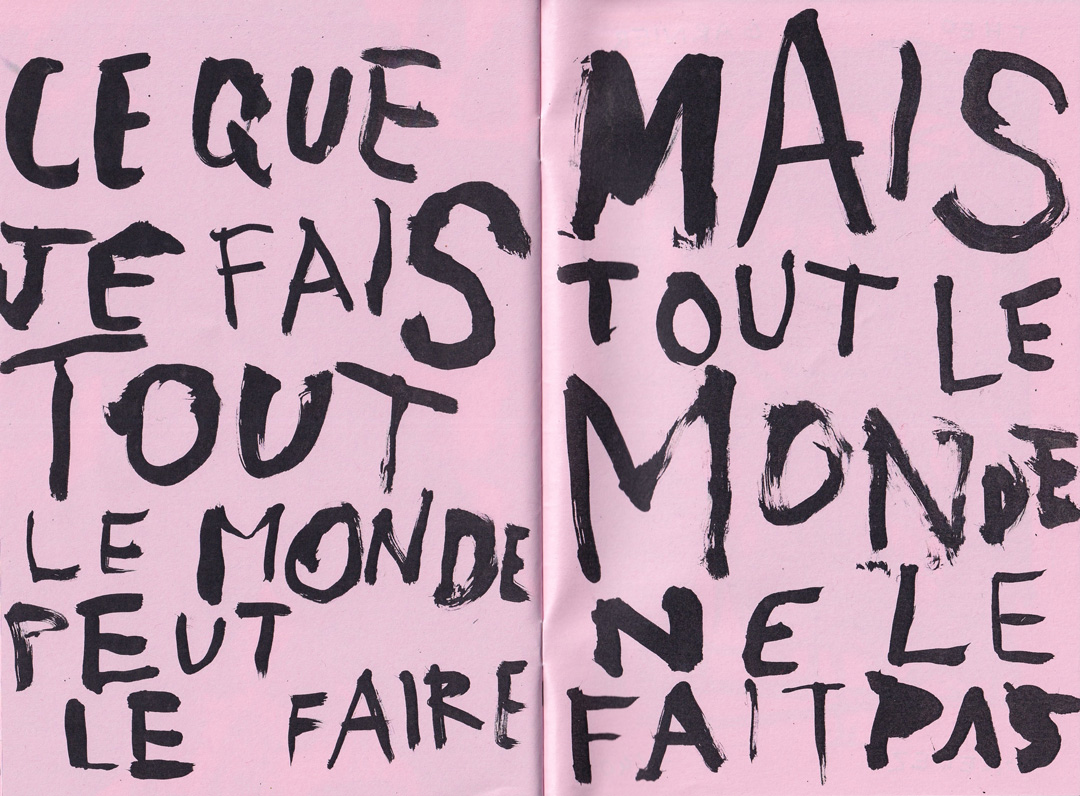 CE QUE
JE FAIS
TOUT
LE MONDE
PEUT
LE FAIRE
MAIS
TOUT LE
MONDE
NE LE
FAIT PAS